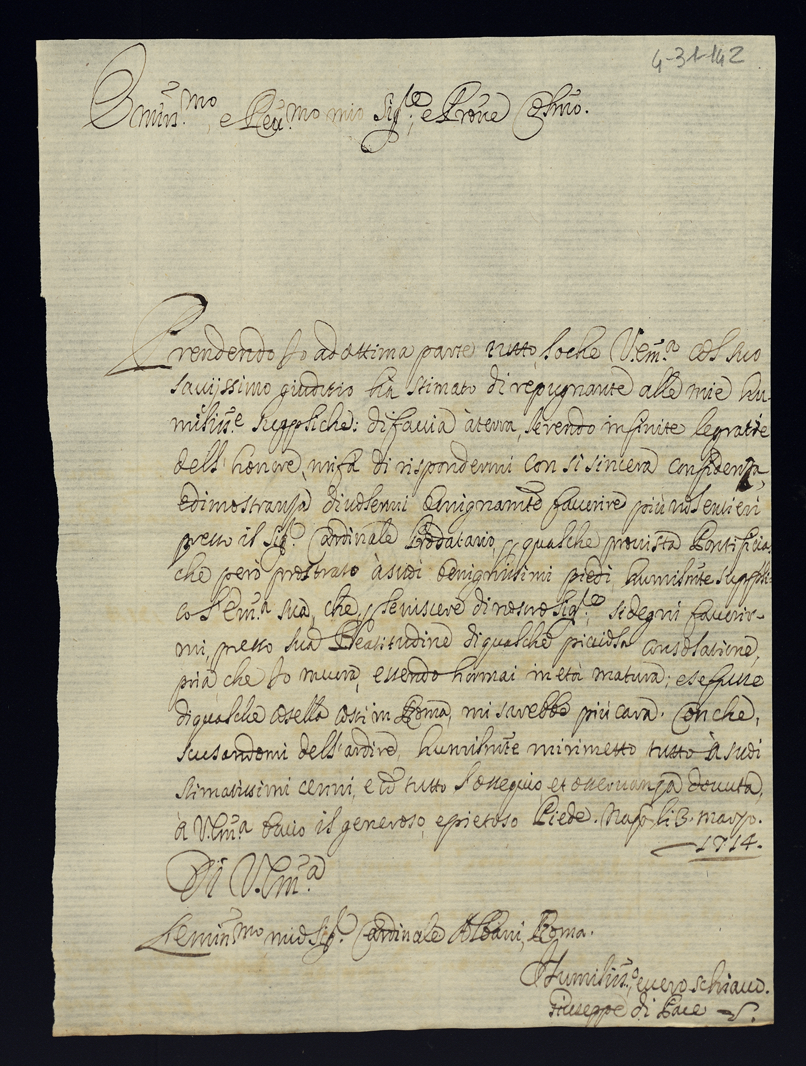 4-31-142
Emin.mo, e Reu.mo mio Sig.re, e Prone Colmo.
Prendendo Io ad ottima parte tutto, loche V. Em.a col suo
sauijssimo giuditio hà stimato di repugnante alle mie hu-
milime suppliche: di faccia à terra, le rendo infinite legratie
dell'honore, mi fà di rispondermi con si sincera confidenza,
e dimostranza di uolermi benignamte fauorire più uolentieri
presso il Sig.r Cardinale Prodatario, p qualche prouista Pontificia.
che però prostrato à suoi benignissimi piedi, humilmte suppli-
co l'Em.a sua, che, p leuiscere di nostro Sig.re, si degni fauorir-
mi, presso sua Beatitudine di qualche picciola consolatione,
pria che Io muora, essendo hormai in età matura; e se fusse
di qualche cosella costi in Roma, mi sarebbe più cara. Con che,
scusandomi dell'ardire, humilmte mi rimetto tutto à suoi
stimatissimi cenni, e cõ tutto l'ossequio et osseruanza douuta,
à V. Em.a bacio il generoso, e pietoso Piede. Napoli 3. marzo.
1714.
Di V. Em.a
L'emin.mo mio Sig.r Cardinale Albani, Roma.
Humiliss.o, e uero schiauo.
Giuseppe di Pace